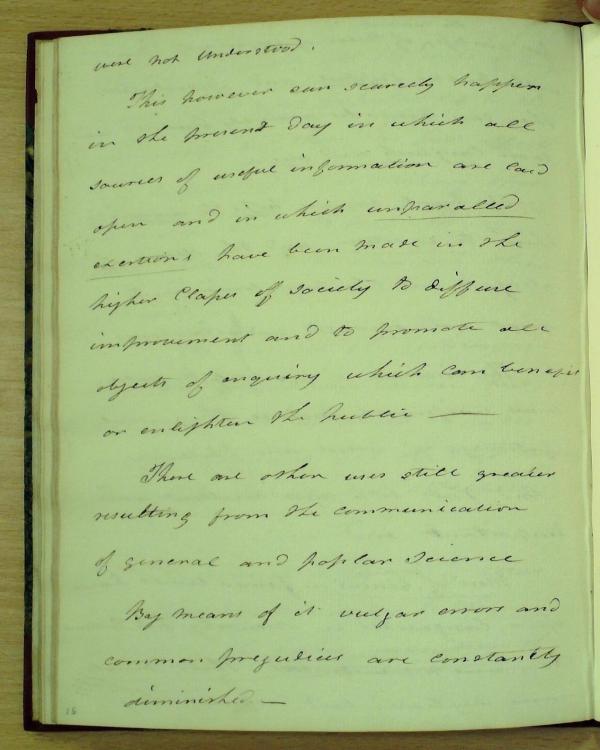 were not Understood.
This however can scarcely happen
in the present day in which all
sources of useful information are laid
open and in which unparalled
exertions have been made in the
higher Classes of Society to diffuse
improvement and to promote all
objects of enquiry which can benefit
or enlighten the public —
There are other uses still greater
resulting from the communication
of general and poplar Science
By means of it vulgar errors and
common prejudices are constantly
diminished —
18